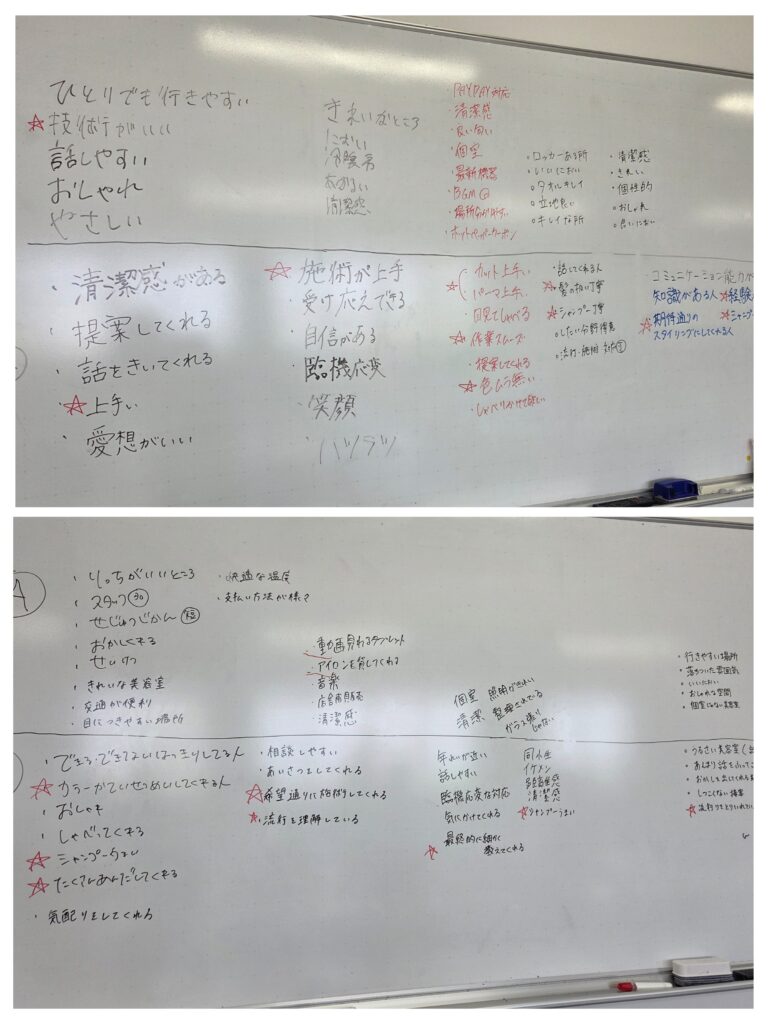 ひとりでも行きやすい
☆技術がいい
話しやすい
おしゃれ
やさしい
きれいなところ
におい
冷暖房
清潔感
・PAYPAY対応
・清潔感
・良い匂い
・個室
・最新機器
・BGM
・ホットペッパークーポン
○ロッカーある所
○いいにおい
○タオルキレイ
○立地良い
○キレイな所
・清潔感
・きれい
・個性的
・おしゃれ
・良いにおい
・清潔感がある
・提案してくれる
・話をきいてくれる
・☆上手い
・愛想がいい
☆施術が上手
・受け応えできる
・自信がある
・臨機応変
・笑顔
・ハツラツ
☆カット上手い
パーマ上手い
・☆作業スムーズ
・提案してくれる
・☆色ムラ無い
・話してくれる人
☆髪の扱い丁寧
☆シャンプー丁寧
・コミュニケーション能力が
知識がある人
☆経験
☆期待通りの
スタイリングにしてくれる人
☆シャンプー
A
・りっちがいいところ
・スタッフ
・せじゅつじかん 短
・おかしくれる
・せいけつ
・きれいな美容室
・交通が便利
・目につきやすい場所
・快適な温度
・支払い方法が様々
・動画見れるタブレット
・アイロンを貸してくれる
・音楽
・清潔感
個室
清潔
照明がきれい
整理されている
・行きやすい場所
・落ちついた雰囲気
・いいにおい
・おしゃれな空間
・個室じゃない美容室
・できる・できてないはっきりしてる人
・☆カラーがていせつめいしてくれる人
・おしゃれ
・しゃべってくれる
・☆シャンプーうまい
・☆たくさんあんだしてくれる
・気配りをしてくれる
・相談しやすい
・あいさつをしてくれる
☆希望通りに施術してくれる
☆流行を理解している
年れいが近い
話しやすい
臨機応変な対応
気にかけてくれる
☆最終的に細かく
教えてくれる
同じ性
イケメン
清潔感
☆シャンプーうまい
○うるさい美容室
・しつこくない接客